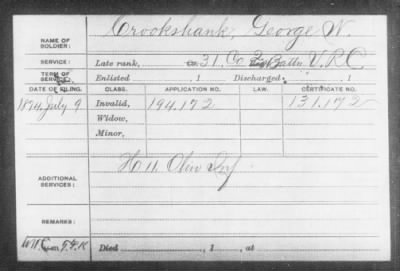 NAME OF SOLDIER: Crookshank, George W.
SERVICE: Late rank, Co. 31, Co 2 Battn V.R.C.
TERM OF SERVICE: Enlisted , 1 Discharged , 1
DATE OF FILING. CLASS. APPLICATION NO. LAW. CERTIFICATE NO.
1874 July 9 Invalid, 194.172 131.172
Widow,
Minor,
ADDITIONAL SERVICES: H 11 Ohio Inf
REMARKS:
Died , 1 , at